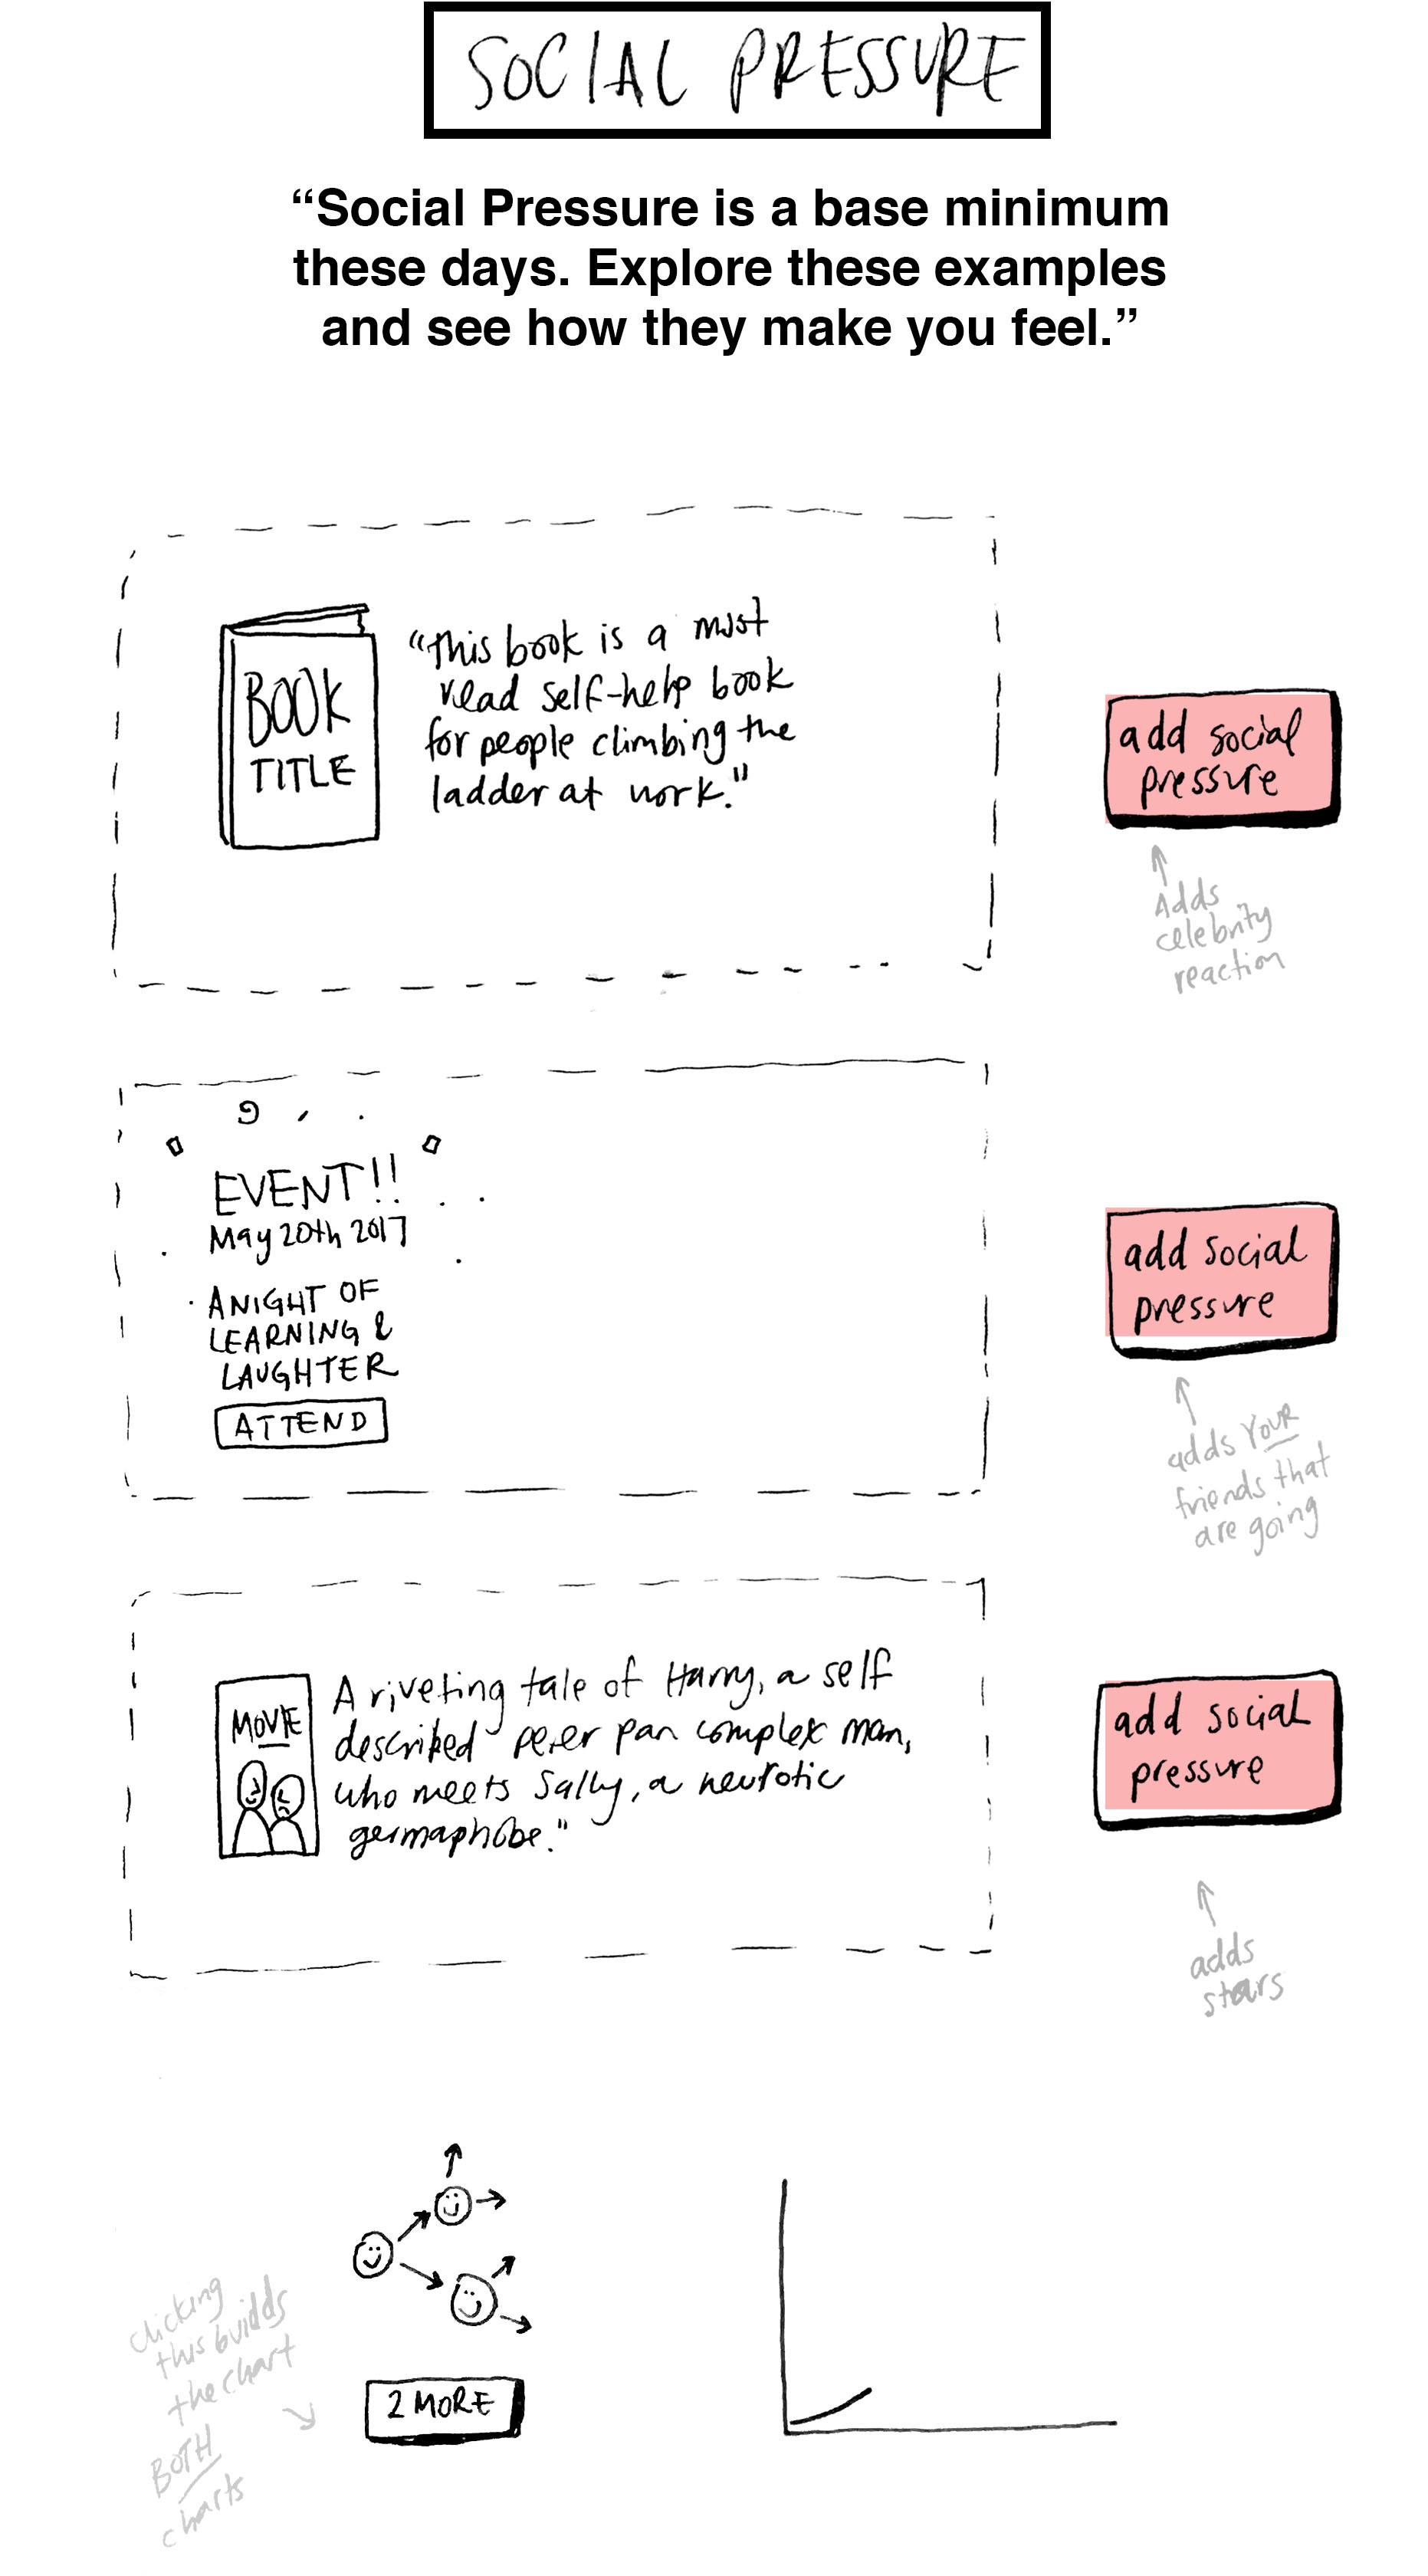 SOCIAL PRESSURE
“Social Pressure is a base minimum
these days. Explore these examples
and see how they make you feel.”
BOOK
TITLE
“This book is a must
read self-help book
for people climbing the
ladder at work."
add social
pressure
Adds
celebrity
reaction
EVENT!!
May 20th 2017
A NIGHT OF
LEARNING &
LAUGHTER
ATTEND
add social
pressure
adds YOUR
friends that
are going
MOVIE
A riveting tale of Harry, a self
described peter pan complex man,
who meets Sally, a neurotic
germaphobe."
add social
pressure
adds
stars
clicking
this builds
the chart
BOTH
charts
2 MORE